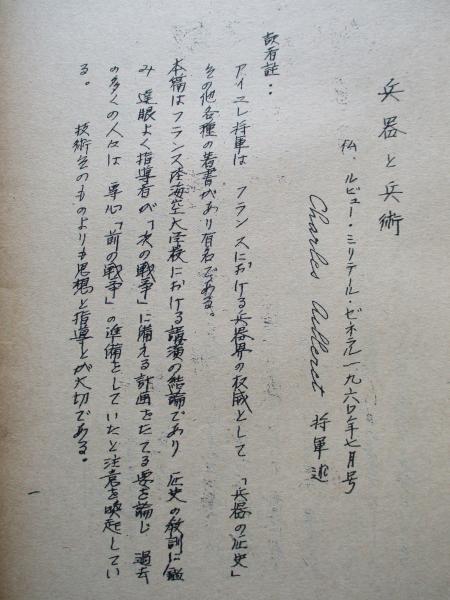 兵器と兵術
仏、ルビュー・ミリテール・ゼネラル一九六〇年七月号
Charles Ailleret 将軍述
訳者註：
アイユレ将軍は フランスにおける兵器界の权威として 「兵器の歴史」
その他各種の著書があり有名である。
本稿はフランス陸海空大学校における講演の結論であり 歴史の教訓に鑑
み 達眼よく指導者が「次の戦争」に備える計画をたてる要を論じ 過去
の多くの人々は 専心「前の戦争」の準備をしていたと注意を喚起してい
る。 技術そのものよりも思想と指導とが大切である。
一